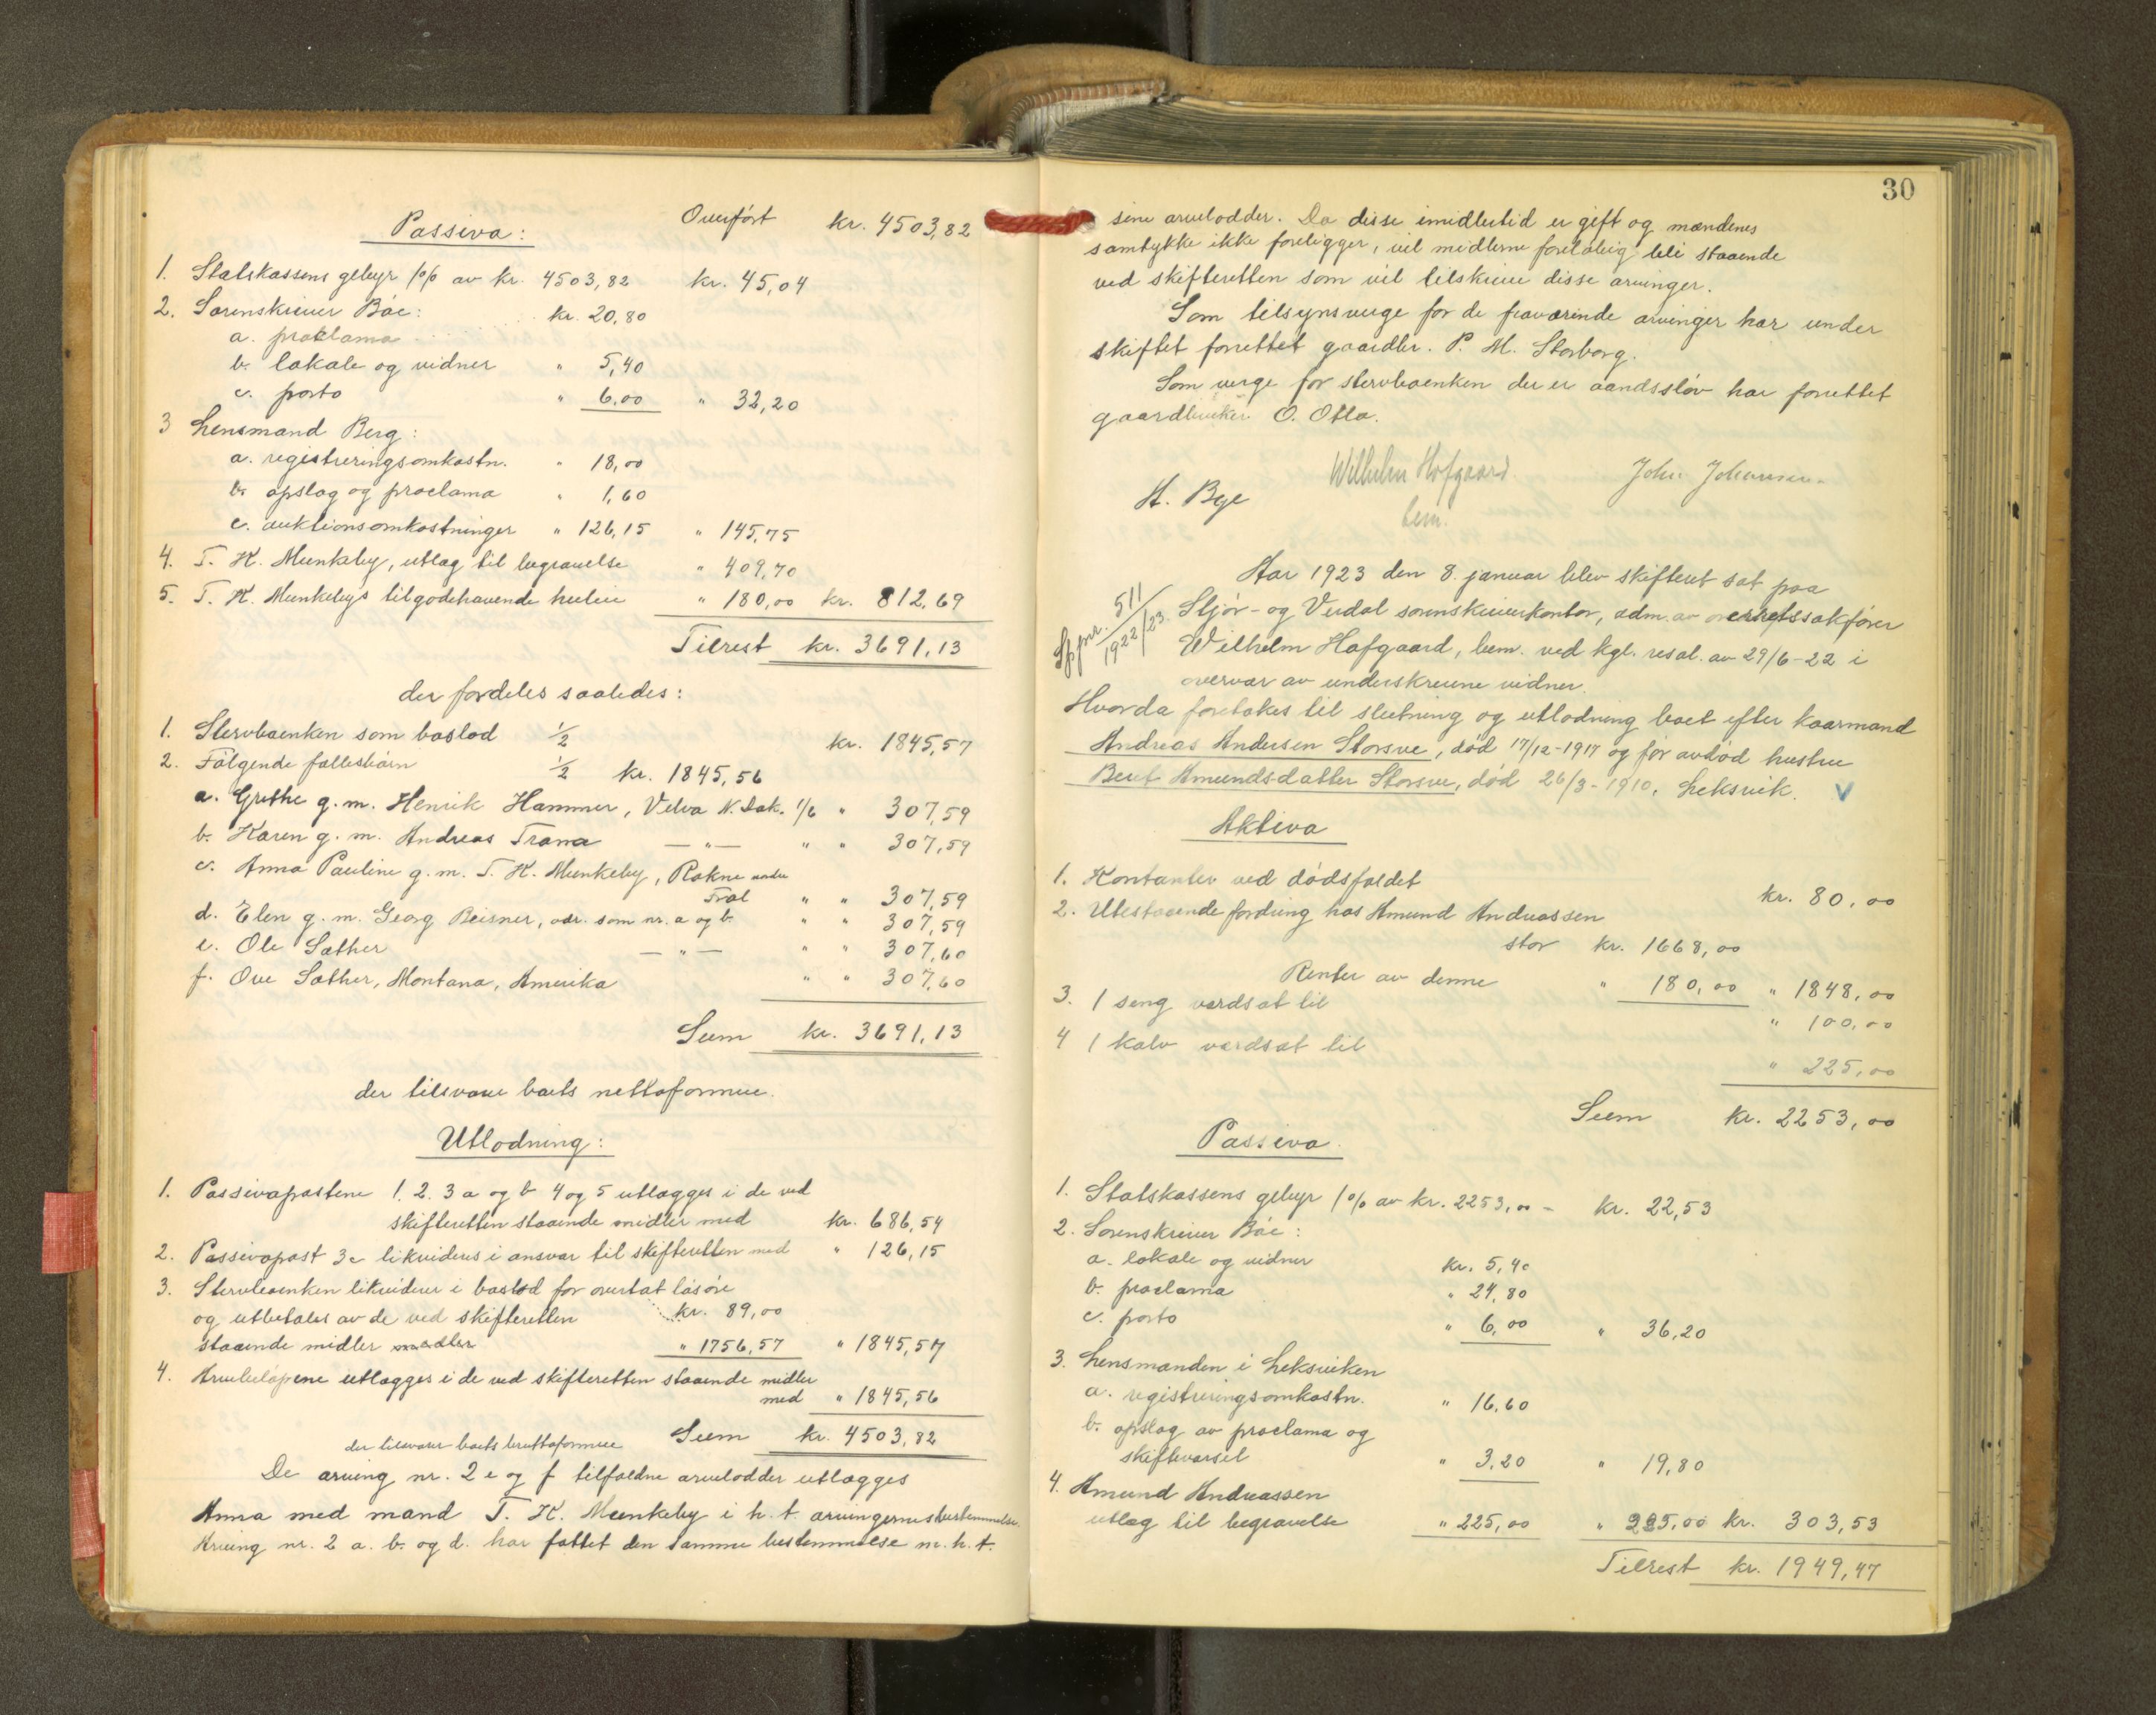 Overført kr. 4503,82
Passiva:
1. Statskassens gebyr 1% av kr. 4503,82 kr. 45,04
2. Sorenskriver Bóe:
a. proclama kr. 20,80
b. lokale og vidner " 5,40
c. porto " 6,00 " 32,20
3 Lensmand Berg:
a. registreringsomkostn. " 18,00
b. opslag og proclama " 1,60
c. auktionsomkostninger " 126,15 " 145,75
4. T. K. Munkeby, utlæg til begravelse " 409,70
5. T. K. Munkebys tilgodehavende husleie " 180,00 kr. 812,69
Tilrest kr. 3691,13
der fordeles saaledes:
1. Stervboenken som boslod 1/2 kr. 1845,57
2. Følgende fællesbarn 1/2 kr. 1845,56
a. Grethe g. m. Henrik Hammer, Velva N. Dak. 1/6 " 307,59
b. Karen g. m. Andreas Trana — " — " " 307,59
c. Anna Pauline g. m. T. K. Munkeby, Rokne
" " 307,59
d. Elen g. m. Georg Beisner, adr. som nr. a og b. " " 307,59
e. Ole Sæther — " — " " 307,60
f. Ove Sæther, Montana, Amerika " " 307,60
Sum kr. 3691,13
der tilsvarer boets nettoformue.
Utlodning:
1. Passivapostene 1. 2. 3 a og b 4 og 5 utlægges i de ved
skifteretten staaende midler med kr. 686,54
2. Passivapost 3c likvideres i ansvar til skifteretten med " 126,15
3. Stervboenken likviderer i boslod for overtat løsøre
kr. 89,00
og utbetales av de ved skifteretten
staaende midler midler " 1756,57 " 1845,57
4. Arvebeløpene utlægges i de ved skifteretten staaende midler
med " 1845,56
der tilsvarer boets bruttoformue Sum kr. 4503,82
De arving nr. 2 e og f tilfaldne arvelodder utlægges
Anna med mand T. K. Munkeby i h. t. arvingernes bestemmelse.
Arving nr. 2 a. b. og d. har fattet den samme bestemmelse m. h. t.
30
sine arvelodder. Da disse imidlertid er gift og mændenes
samtykke ikke foreligger, vil midlerne foreløbig bli staaende
ved skifteretten som vil tilskrive disse arvinger.
Som tilsynsverge for de fraværende arvinger har under
skiftet forrettet gaardbr. P. M. Storborg.
Som verge for stervboenken der er aandssløv har forrettet
gaardbruker O. Olla.
Wilhelm Hofgaard. John Johansen.
H. Bye
bem.
Aar 1923 den 8. januar blev skifteret sat paa
Sppnr. 511/1922/23.
Stjør- og Verdal sorenskriverkontor, adm. av overretssakfører
Wilhelm Hofgaard, bem. ved kgl. resol. av 29/6-22 i
overvær av underskrevne vidner.
Hvorda foretokes til slutning og utlodning boet efter kaarmand
Andreas Andersen Storsve, død 17/12-1917 og før avdød hustru
Berit Amundsdatter Storsve, død 26/3-1910, Leksvik. V
Aktiva
1. Kontanter ved dødsfaldet kr. 80,00
2. Utestaaende fordring hos Amund Andreassen
stor kr. 1668,00
Renter av denne " 180,00 " 1848,00
3. 1 seng værdsat til " 100,00
4 1 kalv værdsat til " 225,00
Sum kr. 2253,00
Passiva.
1. Statskassens gebyr 1% av kr. 2253,00 - kr. 22,53
2. Sorenskriver Bóe:
a. lokale og vidner kr. 5,40
b. proclama " 24,80
c. porto " 6,00 " 36,20
3. Lensmanden i Leksviken
a. registreringsomkostn. " 16,60
b. opslag av proclama og
skiftevarsel " 3,20 " 19,80
4. Amund Andreassen
utlæg til begravelse " 225,00 " 225,00 kr. 303,53
Tilrest kr. 1949,47